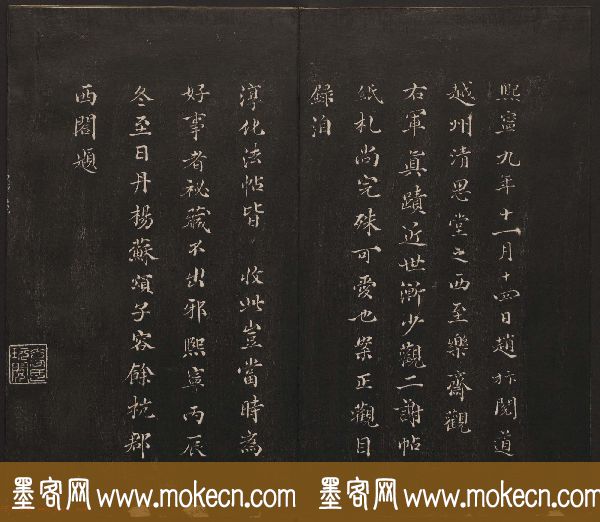 熙寧九年十一月十四日趙抃閱道
越州清思堂之西至樂齋觀
右軍真蹟近世漸少觀二謝帖
紙札尚完殊可愛也案正觀目
錄洎
淳化法帖皆 收此豈當時為
好事者祕藏不出邪熙寧丙辰
冬至日丹楊蘇頌子容餘杭郡
西閣題
墨客网 www.mokecn.com 墨客网 www.mokecn.com